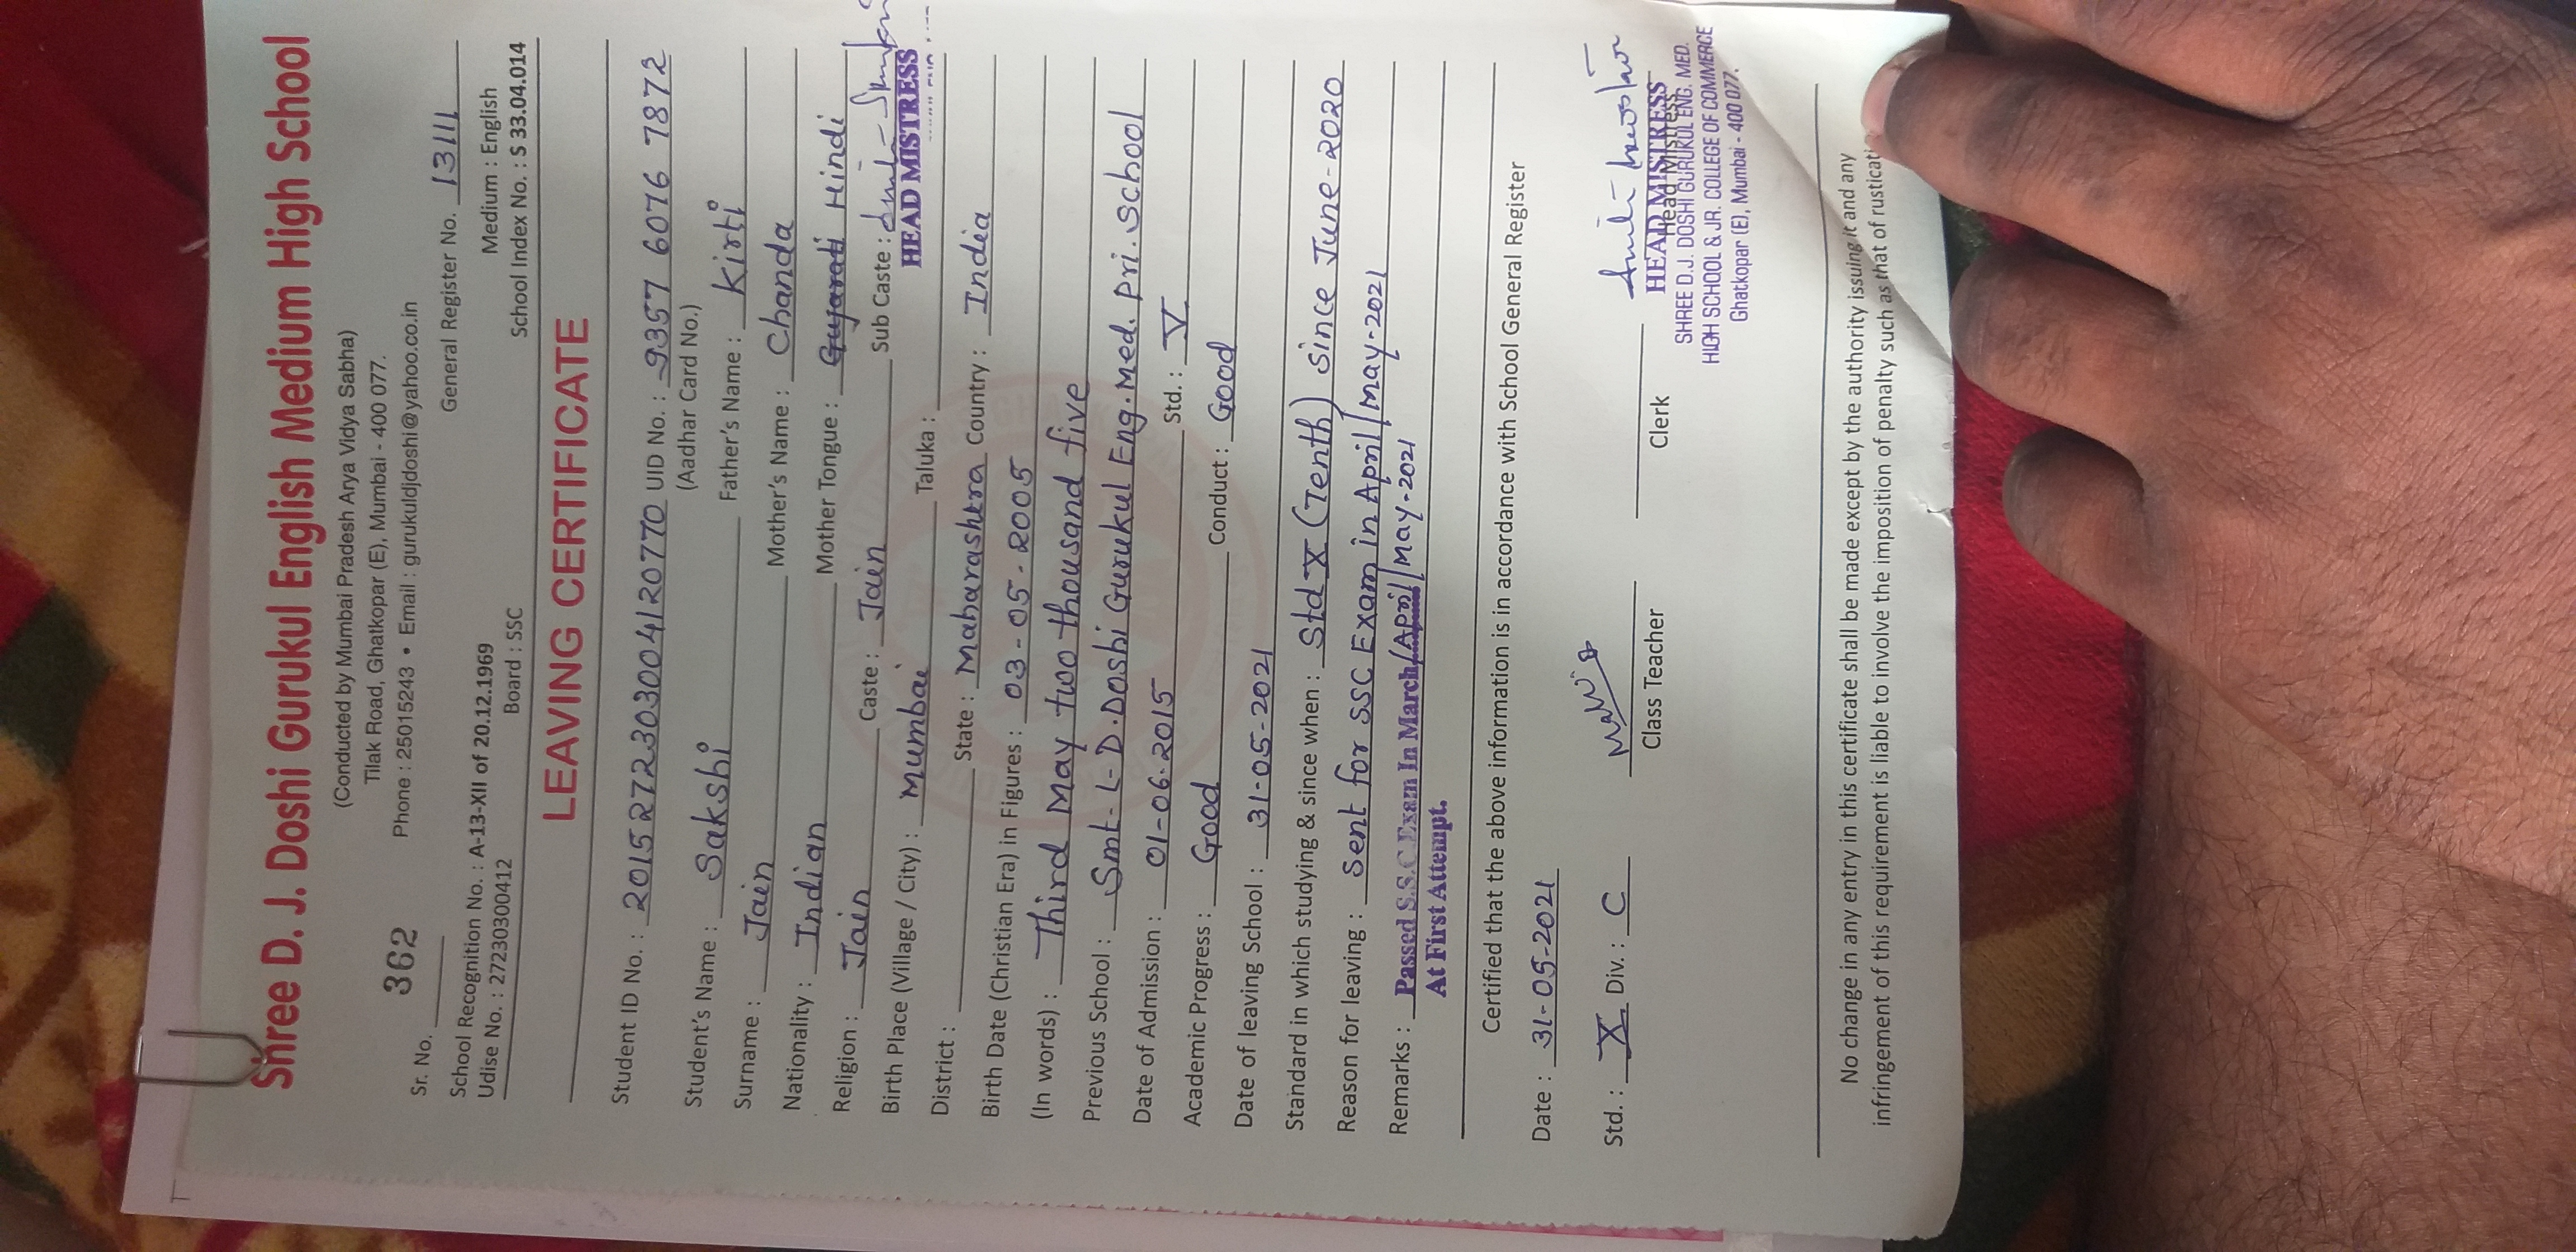 Shree D. J. Doshi Gurukul English Medium High School
(Conducted by Mumbai Pradesh Arya Vidya Sabha)
Tilak Road, Ghatkopar (E), Mumbai - 400 077.
Phone : 25015243 • Email : gurukuldjdoshi@yahoo.co.in
Sr. No. 362 General Register No. 13111
School Recognition No. : A-13-XII of 20.12.1969 Medium : English
Udise No. : 27230300412 Board : SSC School Index No. : S 33.04.014
LEAVING CERTIFICATE
Student ID No. : 2015272303004120770 UID No. : 9357 6076 7872
(Aadhar Card No.)
Student's Name : Sakshi Father's Name : Kirti
Surname : Jain Mother's Name : Chanda
Nationality : Indian Mother Tongue : Gujarati Hindi
Religion : Jain Caste : Jain Sub Caste :
HEAD MISTRESS
Birth Place (Village / City) : Mumbai Taluka :
District : State : Maharashtra Country : India
Birth Date (Christian Era) in Figures : 03-05-2005
(In words) : Third May two thousand five
Previous School : Smt. L.D. Doshi Gurukul Eng. Med. Pri. School
Date of Admission : 01-06-2015 Std. : V
Academic Progress : Good Conduct : Good
Date of leaving School : 31-05-2021
Standard in which studying & since when : Std X (Tenth) since June-2020
Reason for leaving : Sent for SSC Exam in April/May-2021
Remarks : Passed S.S.C. Exam In March/April/May-2021
At First Attempt.
Certified that the above information is in accordance with School General Register
Date : 31-05-2021
Std. : X Div. : C Class Teacher Clerk Head Mistress
HEAD MISTRESS
SHREE D.J. DOSHI GURUKUL ENG. MED.
HIGH SCHOOL & JR. COLLEGE OF COMMERCE
Ghatkopar (E), Mumbai - 400 077.
No change in any entry in this certificate shall be made except by the authority issuing it and any
infringement of this requirement is liable to involve the imposition of penalty such as that of